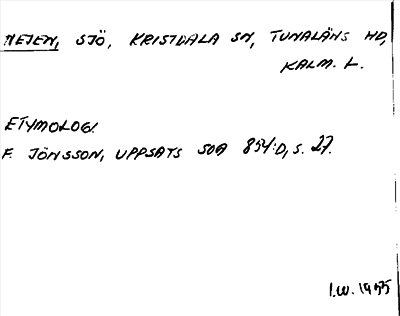 NEJEN, SJÖ, KRISTDALA SN, TUNALÄNS HD,
KALM. L.
ETYMOLOGI.
F. JÖNSSON, UPPSATS SOA 854:D, S. 27.
I.W. 1955